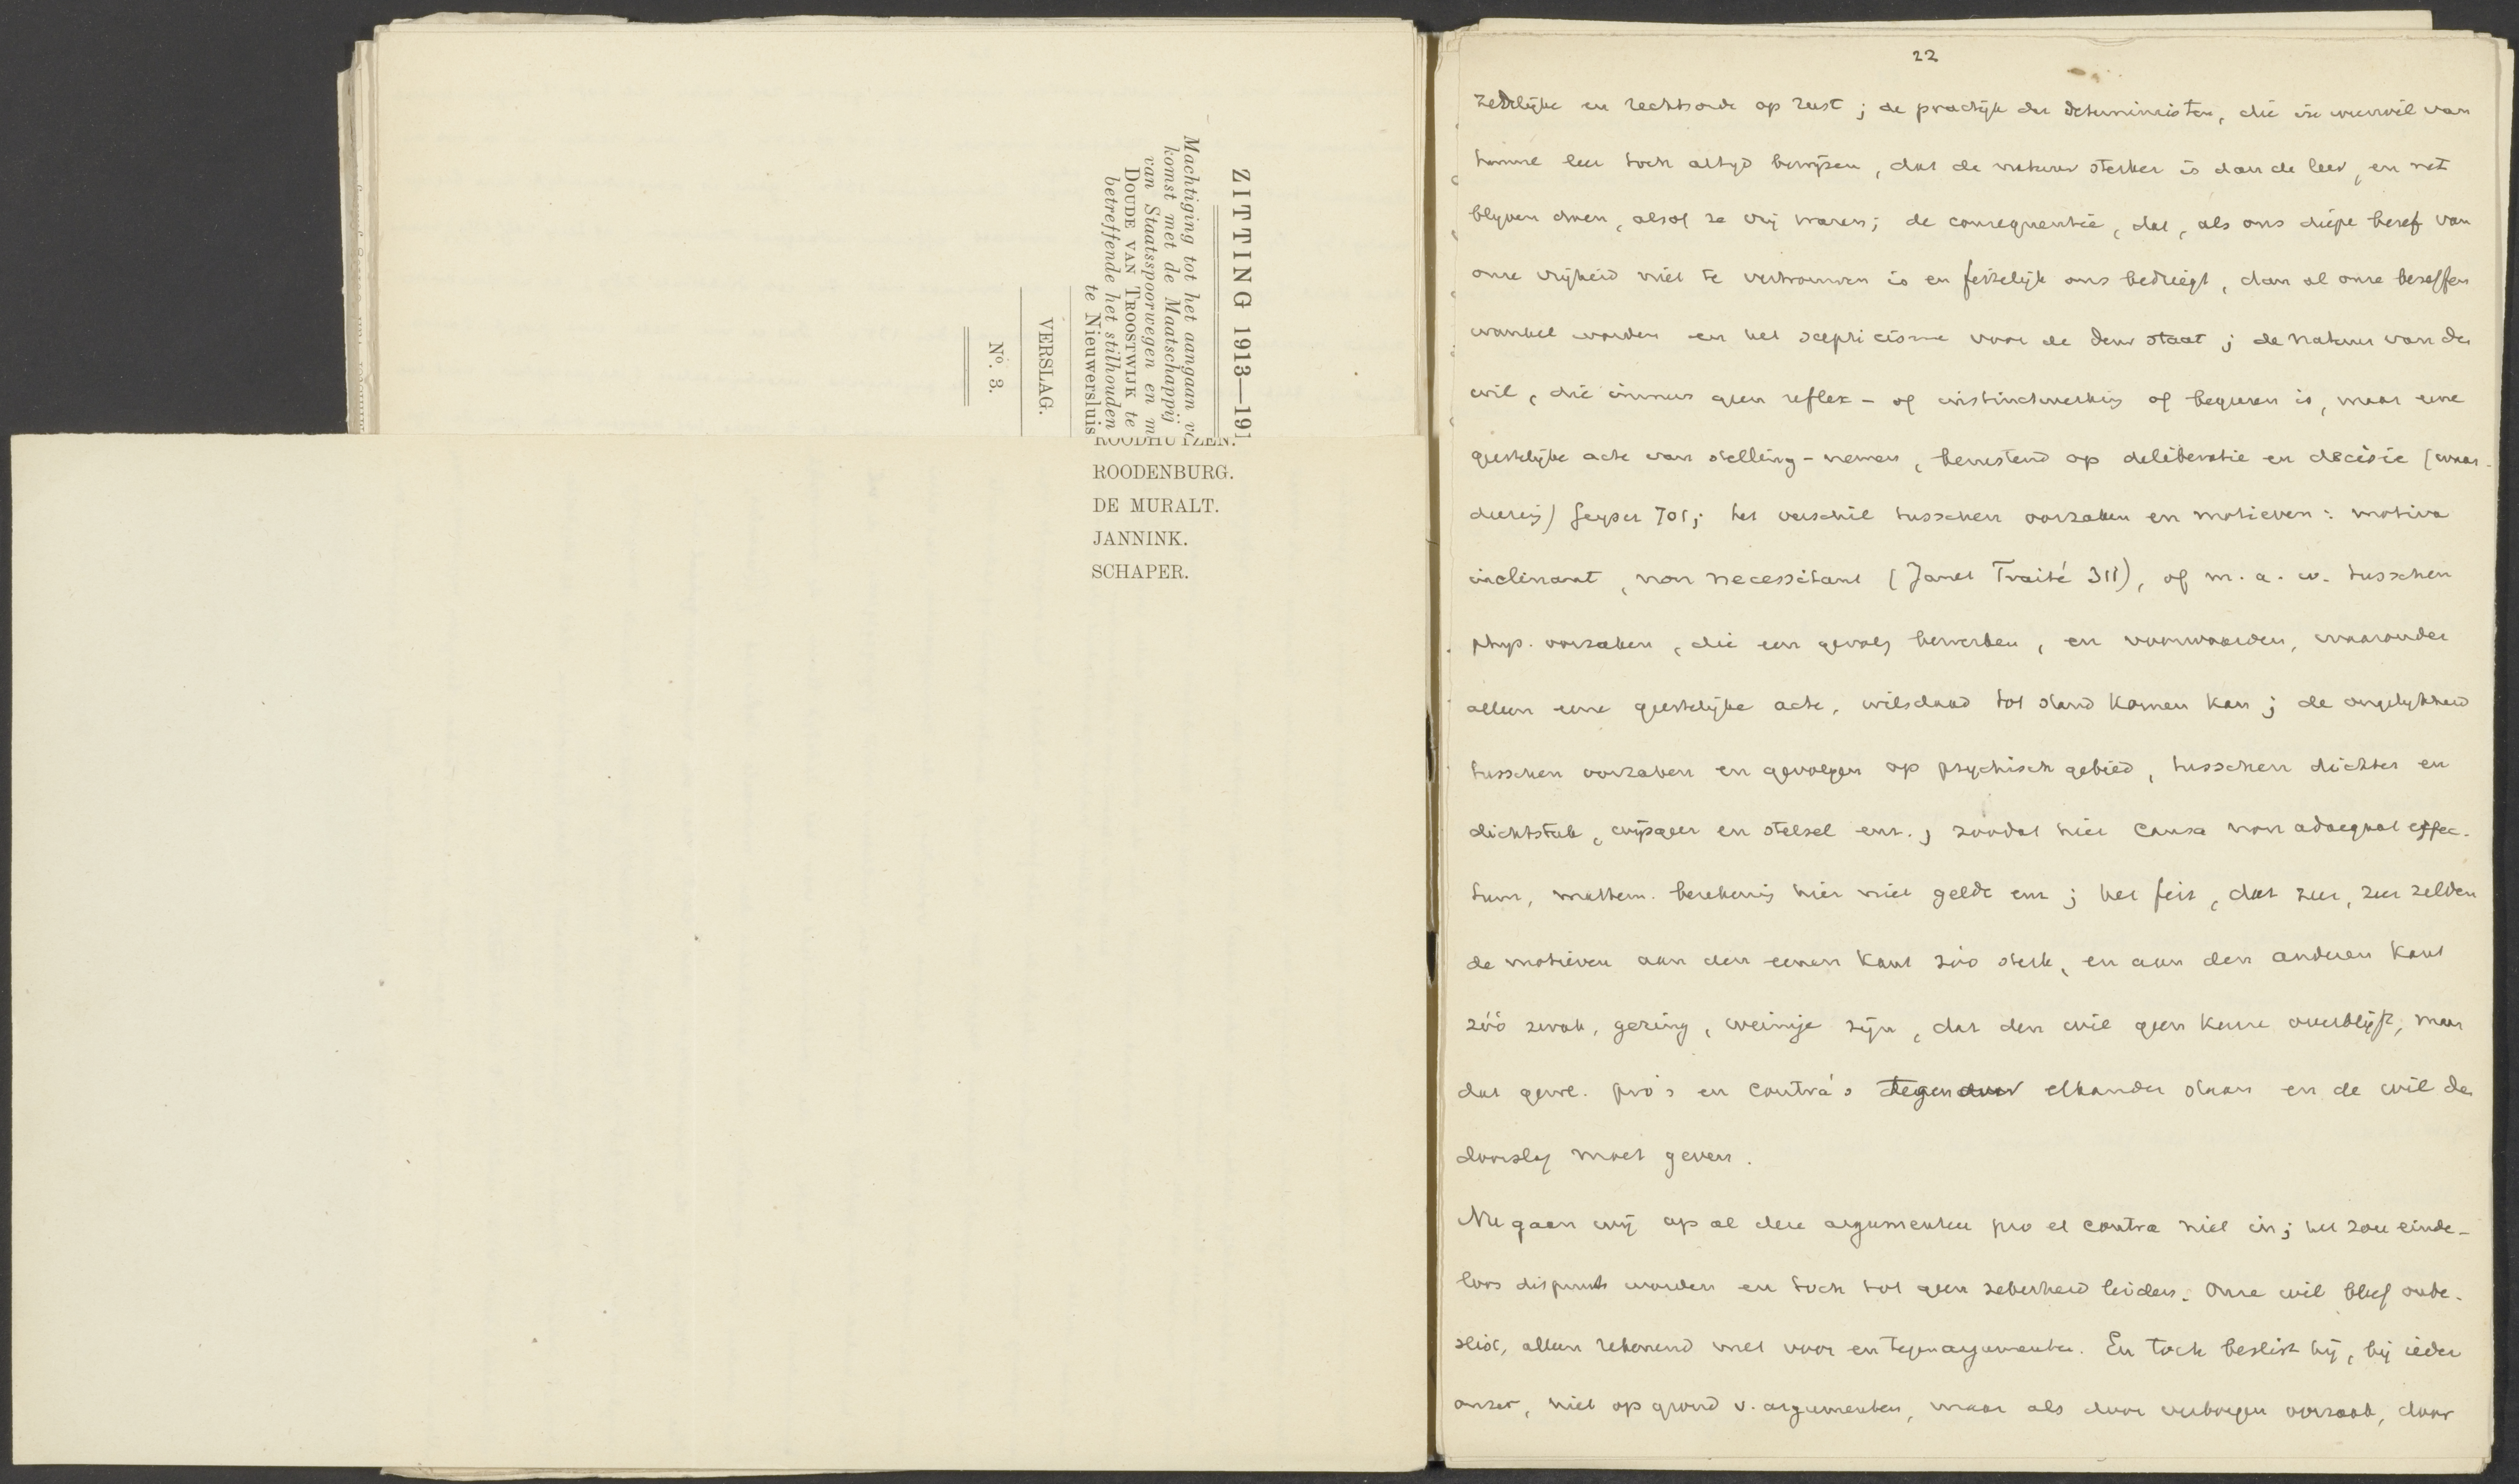 ZITTING 1913—191
Machtiging tot het aangaan v
komst met de Maatschappij
van Staatsspoorwegen en m
DOUDE VAN TROOSTWIJK te
betreffende het stilhouden
te Nieuwersluis
VERSLAG.
No. 3.
ROODHUYZEN.
ROODENBURG.
DE MURALT.
JANNINK.
SCHAPER.
22
zedelijke en rechtsorde op rust; de practijk der deterministen, die in weerwil van
hunne leer toch altijd bewijzen, dat de natuur sterker is dan de leer, en net
blijven doen, alsof ze vrij waren; de consequentie, dat, als ons diepe besef van
onze vrijheid niet te vertrouwen is en feitelijk ons bedriegt, dan al onze beseffen
wankel worden en het scepticisme voor de deur staat; de natuur van den
wil, die immers geen reflex- of instinctwerking of begeeren is, maar eene
geestelijke acte van stelling-nemen, berustend op deliberatie en decisie (waar-
deering) Geyser 701; het verschil tusschen oorzaken en motieven: motiva
inclinant, non necessitant (Janet Traité 311), of m. a. w. tusschen
phys. oorzaken, die een gevolg bewerken, en voorwaarden, waaronder
alleen eene geestelijke acte, wilsdaad tot stand komen kan; de ongelijkheid
tusschen oorzaken en gevolgen op psychisch gebied, tusschen dichter en
dichtstuk, wijsgeer en stelsel enz.; zoodat hier causa non adaequat effec-
tum, mathem. berekening hier niet gelde enz; het feit, dat zeer, zeer zelden
de motieven aan den eenen kant zóó sterk, en aan den anderen kant
zóó zwak, gering, weinige zijn, dat den wil geen keuze overblijft, maar
dat gew. pro's en contra's tegenover elkander staan en de wil den
doorslag moet geven.
Nu gaan wij op al deze argumenten pro et contra niet in; het zou einde-
loos dispuut worden en toch tot geen zekerheid leiden. Onze wil bleef onbe-
slist, alleen rekenend met voor en tegenargumenten. En toch beslist hij, bij ieder
onzer, niet op grond v. argumenten, maar als door verborgen oorzaak, door